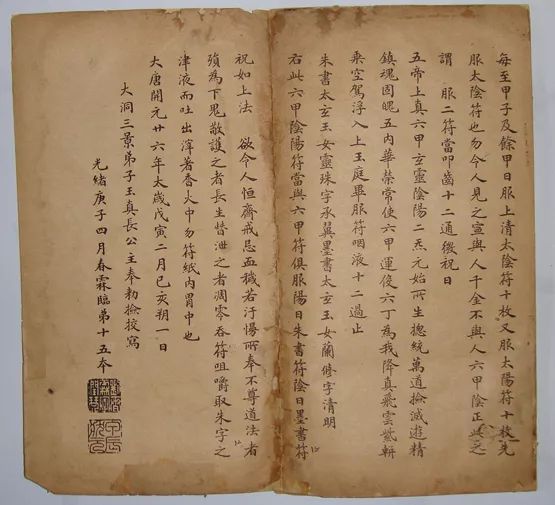 每至甲子及餘甲日服上清太陰符十枚又服太陽符十枚先
服太陰符也勿令人見之宣與人千金不與人六甲陰正此之
謂 服二符當叩齒十二通微祝曰
五帝上真六甲玄靈陰陽二炁元始所生總統萬道撿滅遊精
鎮魂固魄五內華榮常使六甲運役六丁為我降真飛雲紫軿
乘空駕浮入上玉庭畢服符咽液十二過止
朱書太玄玉女靈珠字承翼墨書太玄玉女蘭修字清明
右此六甲陰陽符當與六甲符俱服陽日朱書符陰日墨書符
祝如上法 欲令人恒齋戒忌血穢若汙慢所奉不尊道法者
殃為下鬼敬護之者長生替泄之者凋零吞符咀嚼取朱字之
津液而吐出滓著香火中勿符紙內胃中也
大唐開元廿六年太歲戊寅二月己亥朔一日
大洞三景弟子玉真長公主奉勅撿挍寫
光緒庚子四月春霖臨第十五本